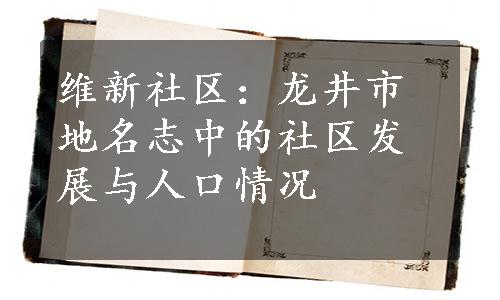 维新社区：龙井市
地名志中的社区发
展与人口情况